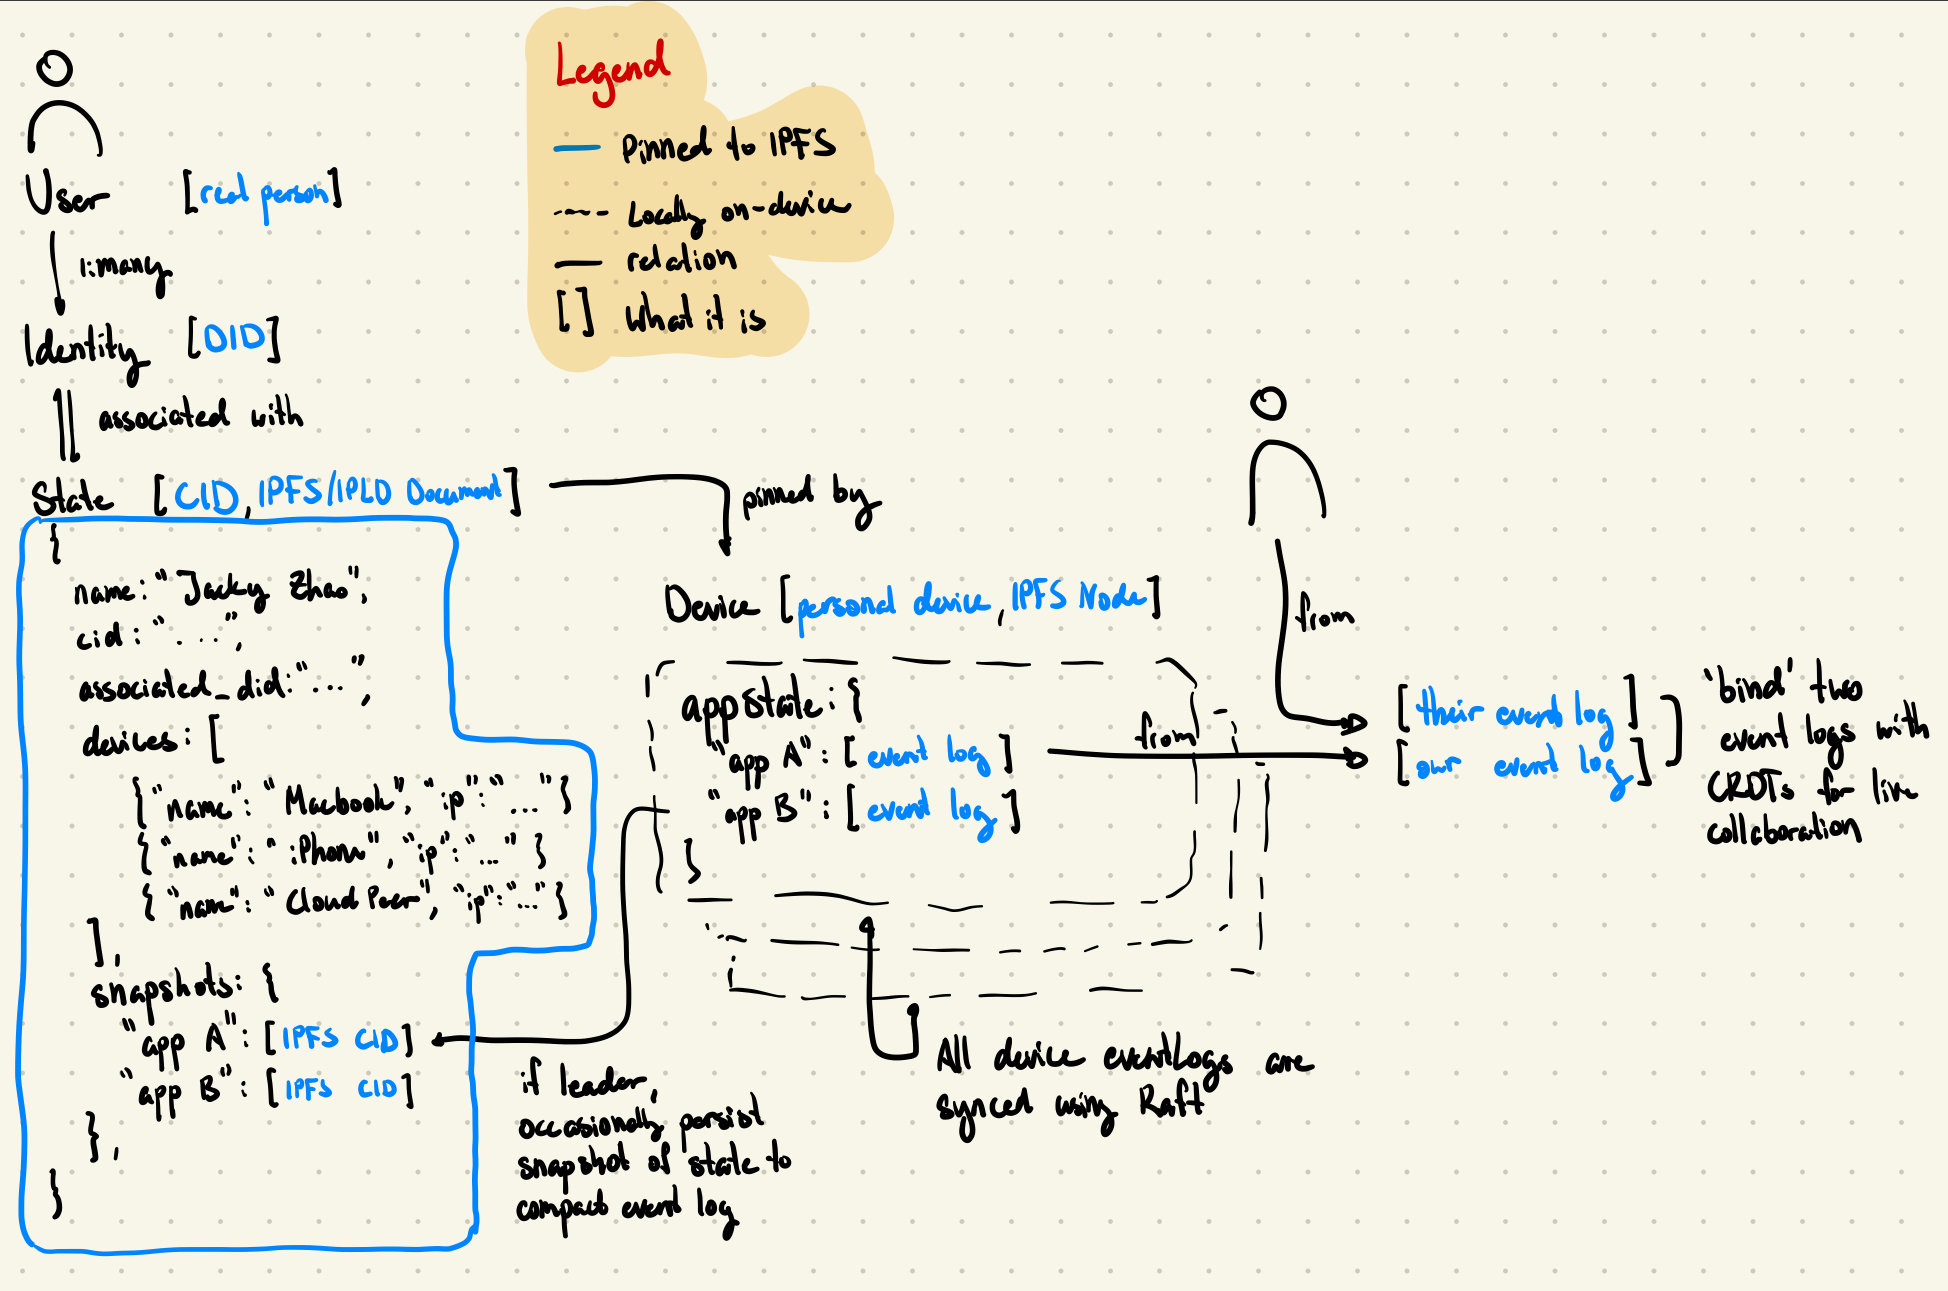 Legend
Pinned to IPFS
Locally on-device
relation
[ ] What it is
User [real person]
1:many
Identity [DID]
associated with
State [CID, IPFS/IPLD Document]
{
name: "Jacky Zhao",
cid: "...",
associated_did: "...",
devices: [
{"name": "Macbook", "ip": "..."}
{"name": "iPhone", "ip": "..."}
{"name": "Cloud Peer", "ip": "..."}
],
snapshots: {
"app A": [IPFS CID]
"app B": [IPFS CID]
},
}
pinned by
Device [personal device, IPFS Node]
appstate: {
"app A": [event log]
"app B": [event log]
}
if leader,
occasionally persist
snapshot of state to
compact event log
All device eventlogs are
synced using Raft
from
from
[their event log]
[our event log]
'bind' two
event logs with
CRDTs for live
collaboration